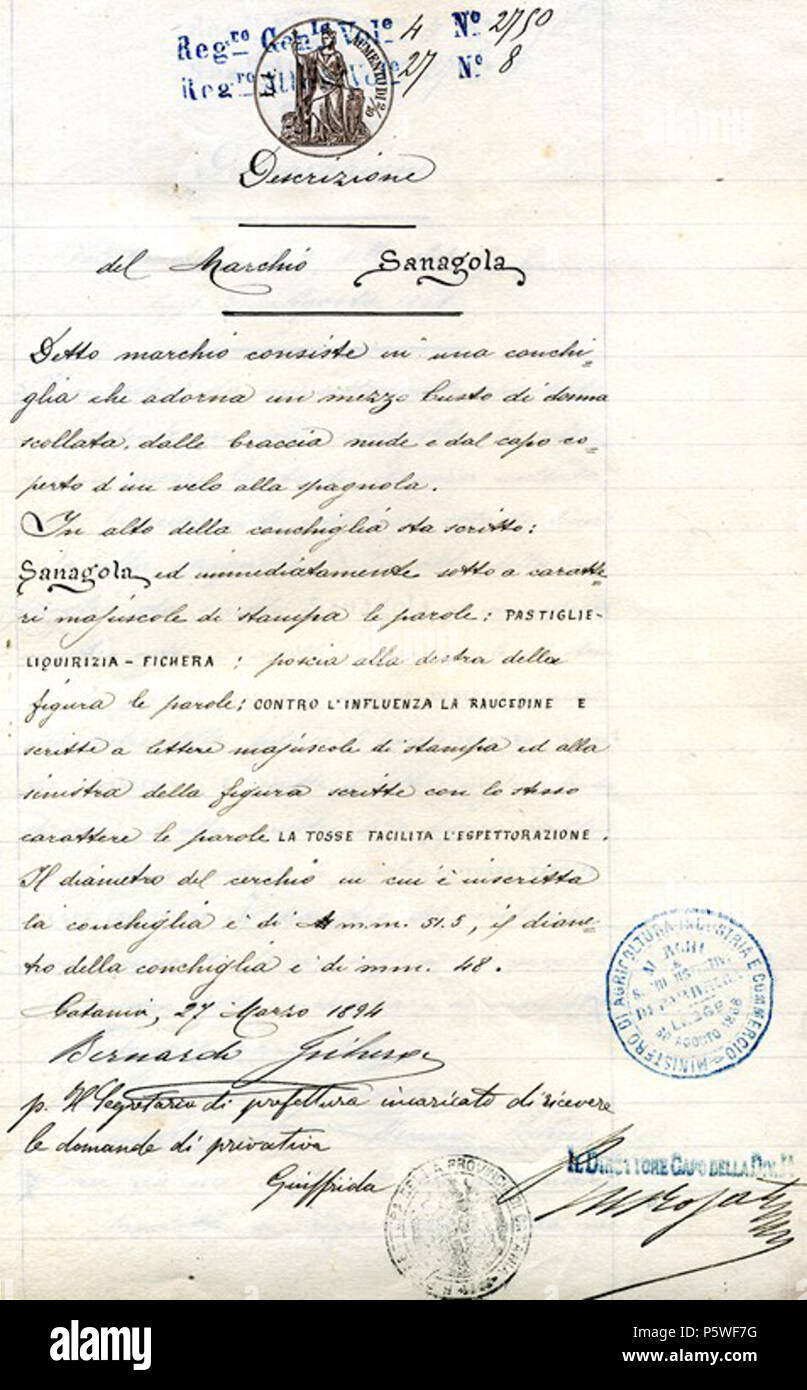 Reg.ro Gen.le Vol.e 4 N.o 2750
Reg.ro Vol.e 27 N.o 8
AUMENTO DI 2/10
Descrizione
del Marchio Sanagola
Detto marchio consiste in una conchi=
glia che adorna un mezzo busto di donna
scollata, dalle braccia nude e dal capo co=
perto d'un velo alla spagnola.
In alto della conchiglia sta scritto:
Sanagola ed immediatamente sotto a caratte=
ri majuscole di stampa le parole: PASTIGLIE-
LIQUIRIZIA-FICHERA; poscia alla destra della
figura le parole: CONTRO L'INFLUENZA LA RAUCEDINE E
scritte a lettere majuscole di stampa ed alla
sinistra della figura scritte con lo stesso
carattere le parole LA TOSSE FACILITA L'ESPETTORAZIONE.
Il diametro del cerchio in cui è inscritta
la conchiglia è di mm. 51.5, il diame=
tro della conchiglia è di mm. 48.
Catania, 27 Marzo 1894
Bernardo
p. Il Segretario di prefettura incaricato di ricevere
le domande di privativa
Giuffrida
MINISTERO DI AGRICOLTURA INDUSTRIA E COMMERCIO
LEGGE
30 AGOSTO 1868
IL DIRETTORE CAPO DELLA DIV.
alamy
Image ID: P5WF7G
www.alamy.com